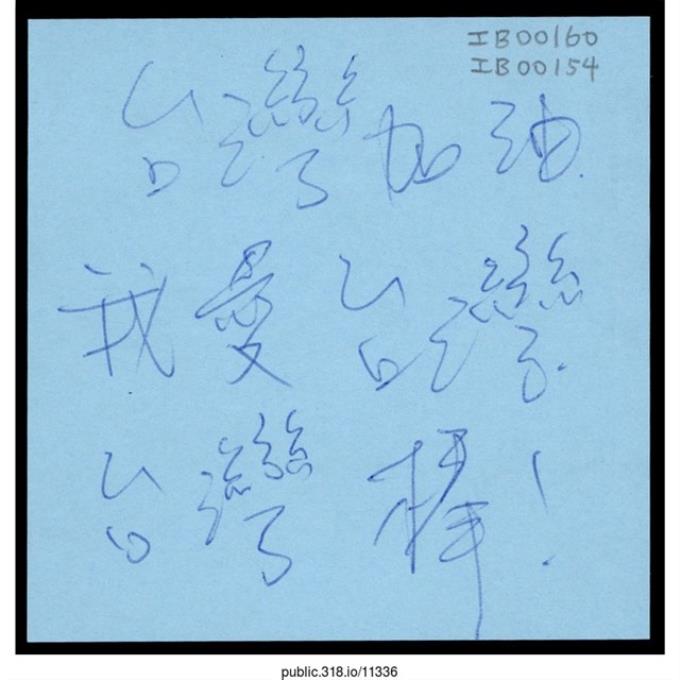 IB00160
IB00154
台灣加油.
我愛台灣.
台灣棒!
public.318.io/11336